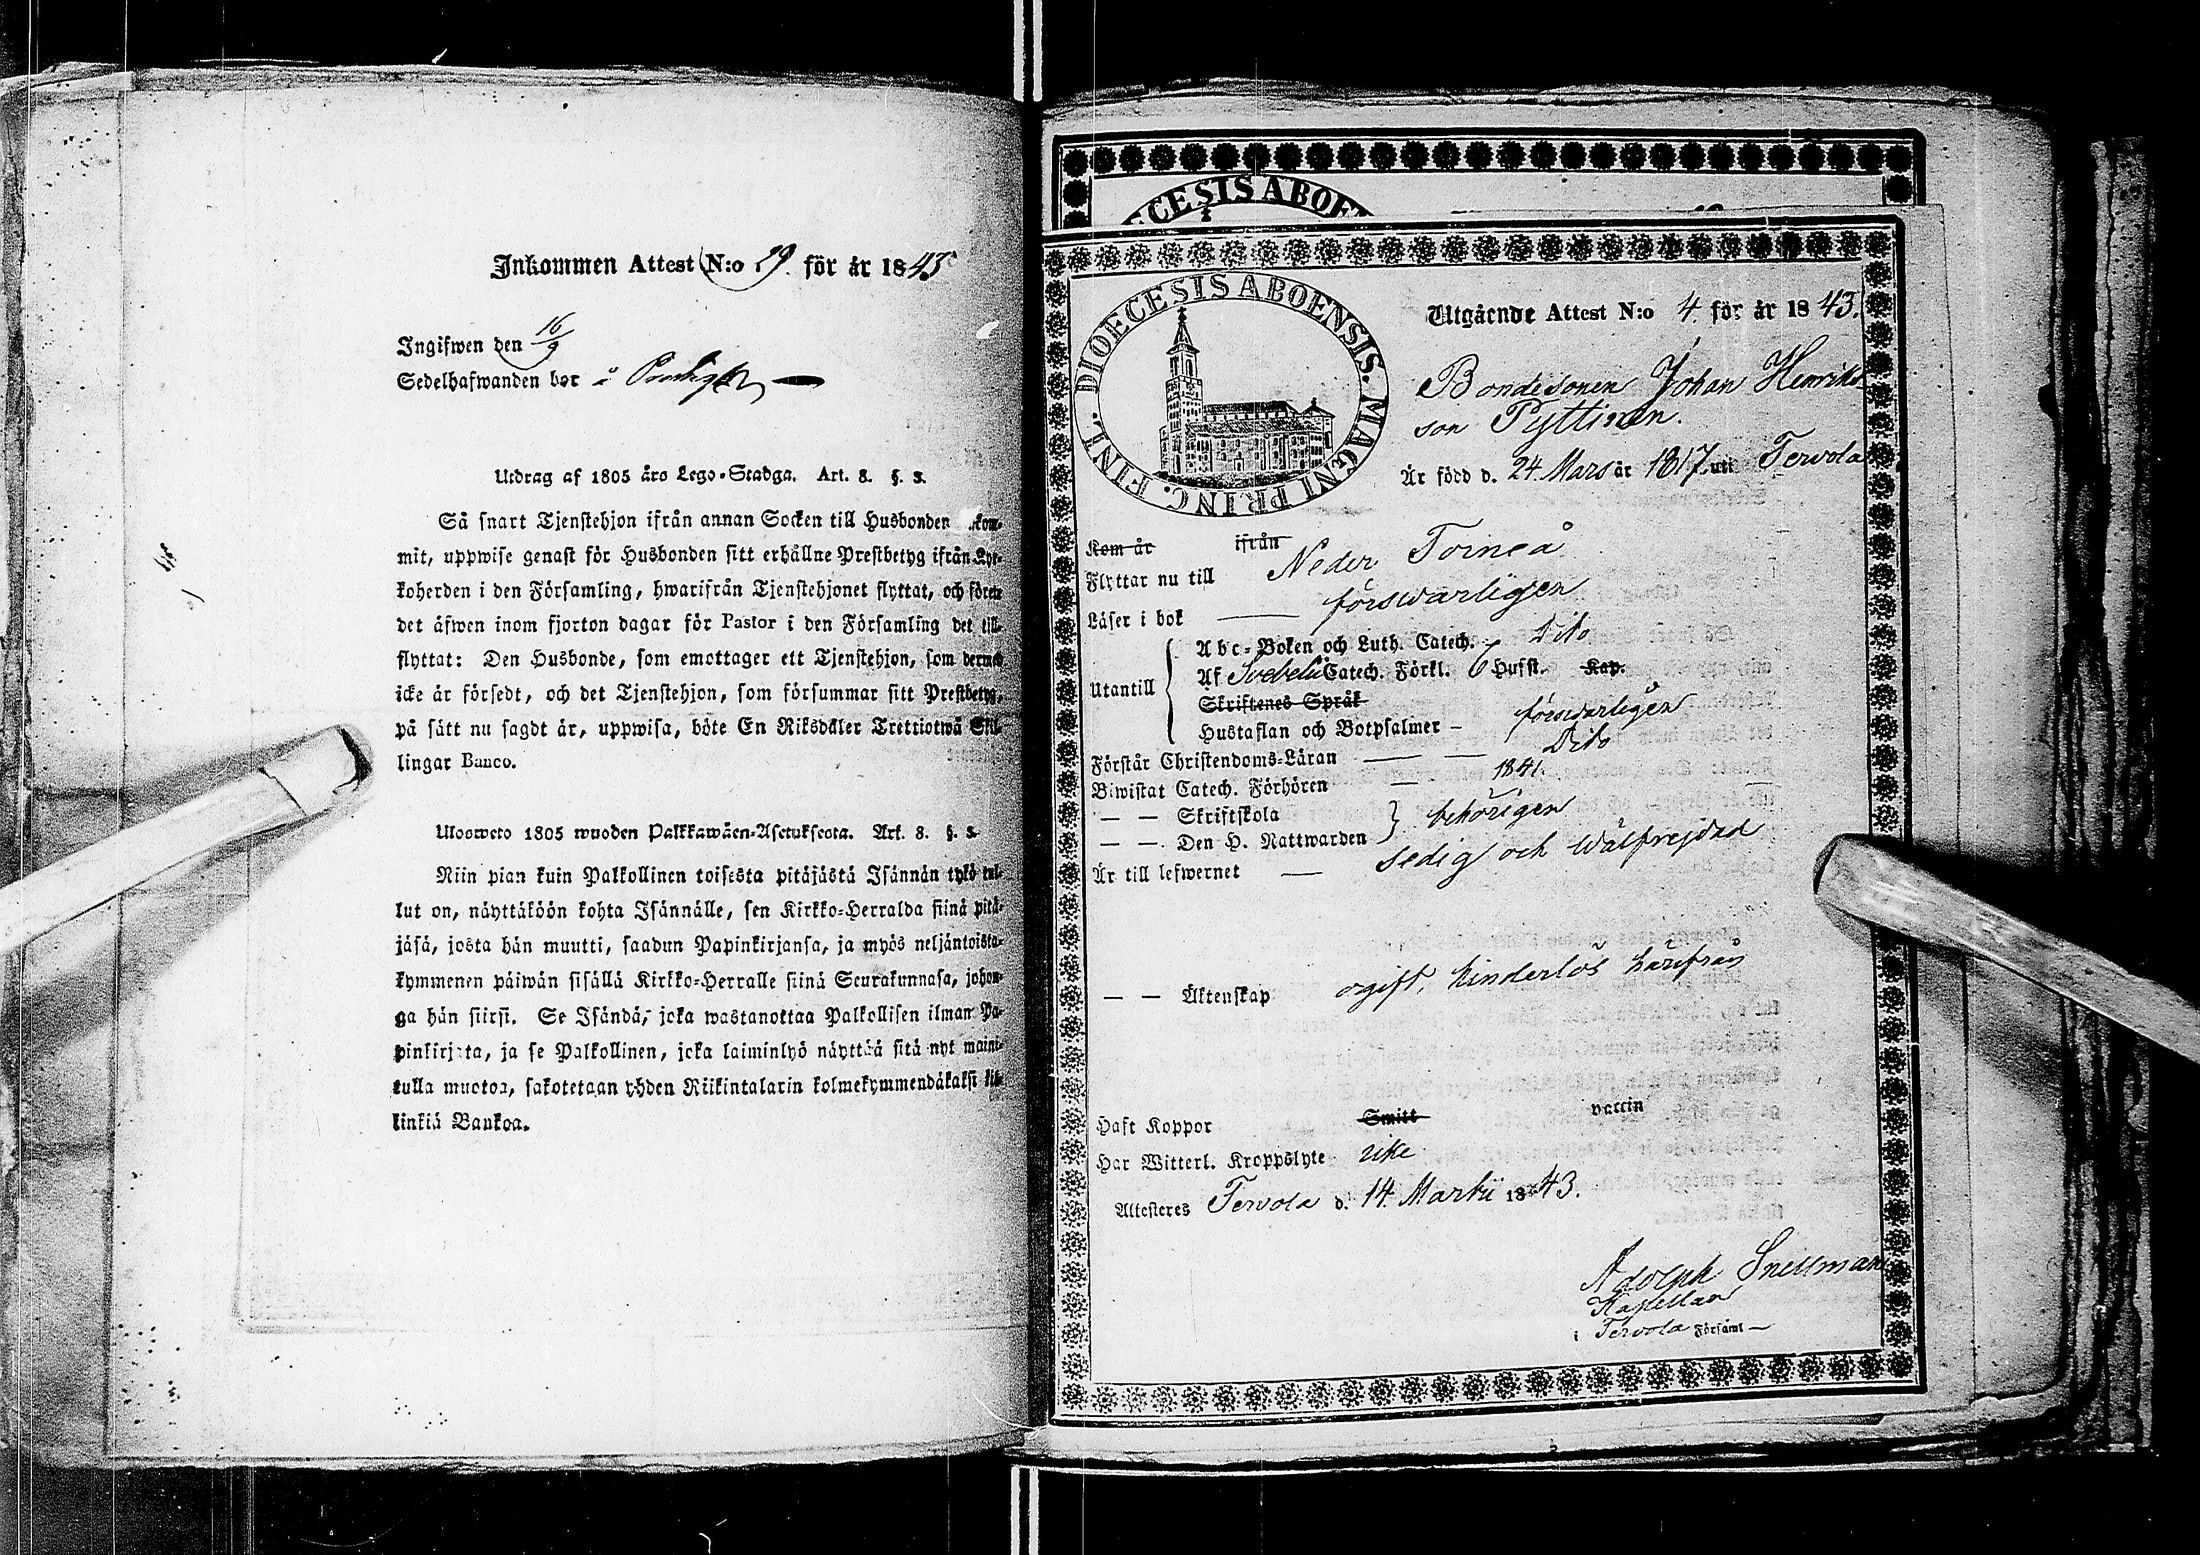 Inkommen Attest N:o 29. för år 1843
Ingifwen den 16/9
Sedelhafwanden bor å
Utdrag af 1805 års Lego-Stadga. Art. 8. §. 5.
Så snart Tjenstehjon ifrån annan Socken till Husbonden
mit, uppwise genast för Husbonden sitt erhållne Prestbetyg ifrån Kyr-
koherden i den Församling, hwarifrån Tjenstehjonet flyttat, och förete
det äfwen inom fjorton dagar för Pastor i den Församling det till-
flyttat: Den Husbonde, som emottager ett Tjenstehjon, som dermed
icke är försedt, och det Tjenstehjon, som försummar sitt Prestbetyg,
på sätt nu sagdt är, uppwisa, böte En Riksdaler Trettiotwå Skil-
lingar Banco.
Ulosweto 1805 wuoden Palkkawäen-Asetuksesta. Art. 8. §. 5.
Niin pian kuin Palkollinen toisesta pitäjästä Isännän tykö tul-
lut on, näyttäköön kohta Isännälle, sen Kirkko-Herralda siinä pitä-
jäsä, josta hän muutti, saadun Papinkirjansa, ja myös neljäntoista-
kymmenen päiwän sisällä Kirkko-Herralle siinä Seurakunnasa, johon-
ga hän siirsi. Se Isändä, joka wastanottaa Palkollisen ilman Pa-
pinkirjata, ja se Palkollinen, joka laiminlyö näyttää sitä nyt maini-
tulla muotoa, sakotetaan yhden Riikintalarin kolmekymmendäkaksi kil-
linkiä Bankoa.
ECESIS ABOEN
DIOECESIS ABOENSIS. MAGNI PRINC. FINL.
Utgående Attest N:o 4. för år 1843.
Bondesonen Johan Henriks-
son Pyttinen.
Är född d. 24 Mars år 1817 uti Tervola
Kom år ifrån
Flyttar nu till Neder Torneå
Läser i bok försvarligen
Abc-Boken och Luth. Catech. Dito
Utantill
Af Svebelii Catech. Förkl. 6 Hufst. Kap.
Skriftenes Språk
Hustaflan och Botpsalmer - försvarligen
Förstår Christendoms-Läran Dito
Biwistat Catech. Förhören 1841.
— — Skriftskola
— — Den H. Nattwarden behörigen
Är till lefwernet sedig och wälfrejdad
— — Äktenskap ogift, kinderlös härifrån
Haft Koppor Smitt vaccin
Har Witterl. Kroppslyte icke
Attesteres Tervola d. 14. Martii 1843.
Adolph Snellman
Kapellan
i Tervola Församl —